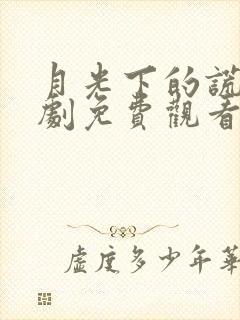 月光下的謊
劇免費觀看
虛度多少年華